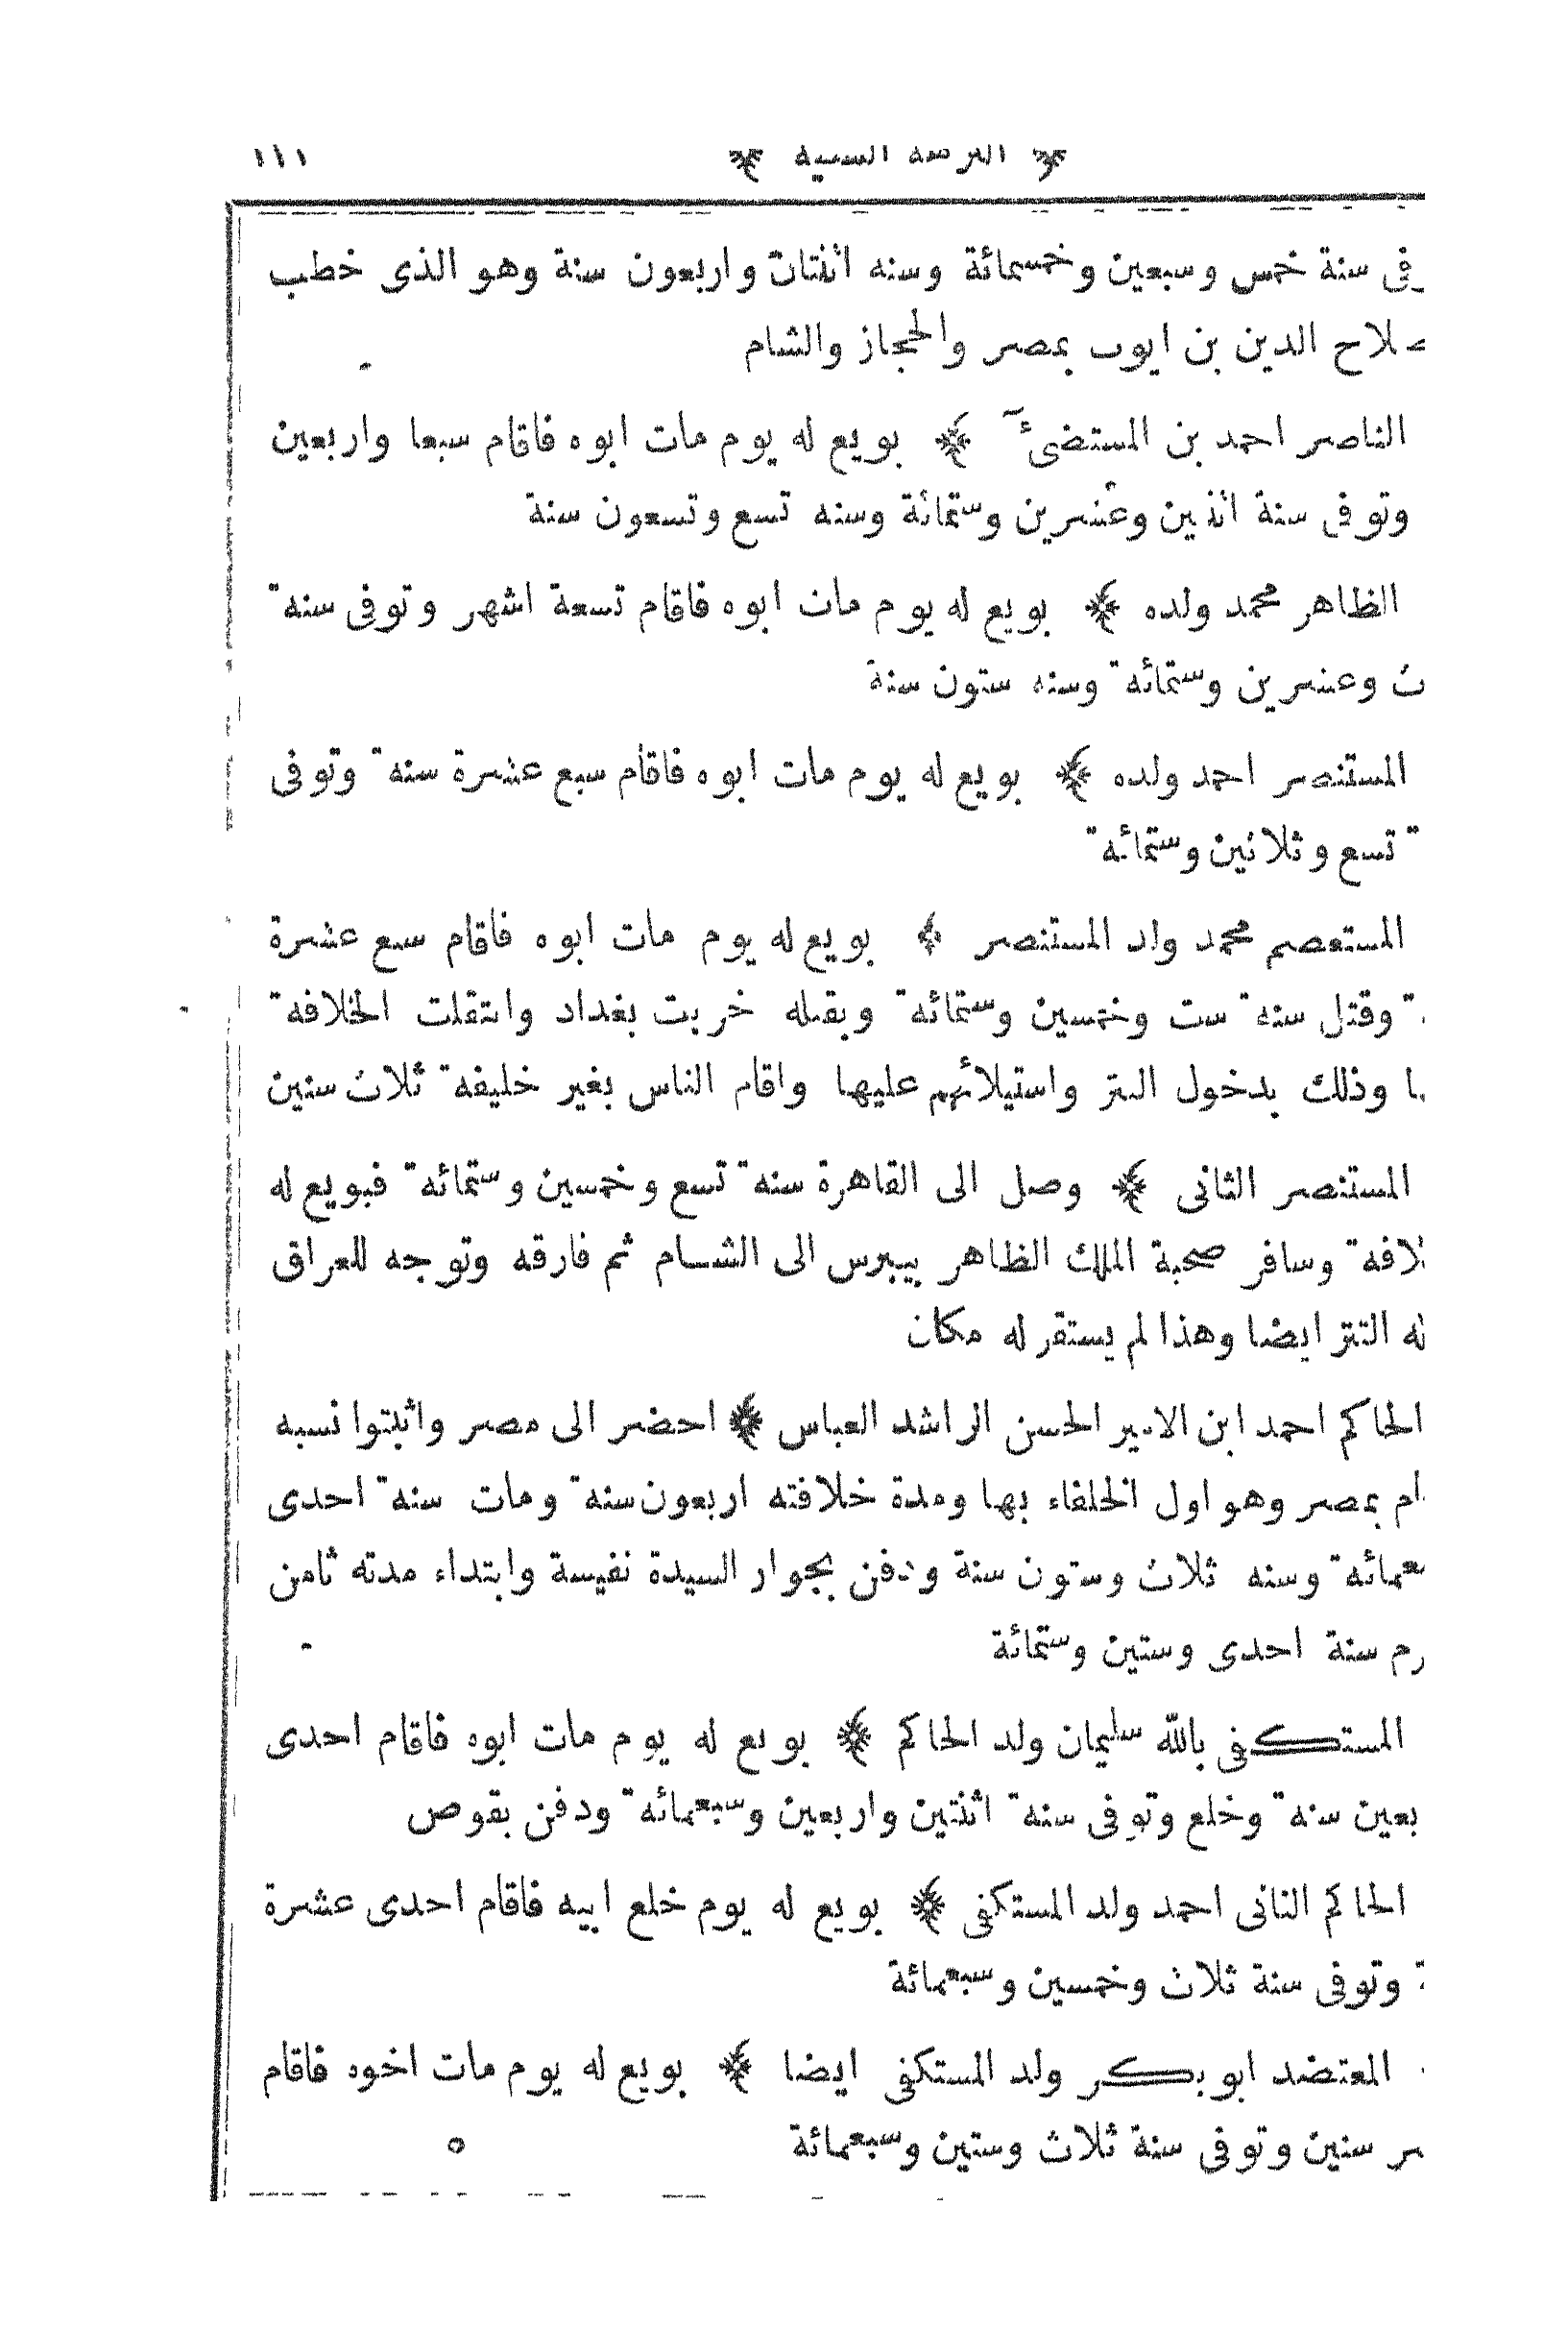 ١١١
فى سنة خمس وسبعين وخمسمائة وسنه اثنتان واربعون سنة وهو الذى خطب
صلاح الدين بن ايوب بمصر والحجاز والشام
الناصر احمد بن المستضئ بويع له يوم مات ابوه فاقام سبعا واربعين
وتوفى سنة اثنين وعشرين وستمائة وسنه تسع وتسعون سنة
الظاهر محمد ولده بويع له يوم مات ابوه فاقام تسعة اشهر وتوفى سنة
وعشرين وستمائة وسنه ستون سنة
المستنصر احمد ولده بويع له يوم مات ابوه فاقام سبع عشرة سنة وتوفى
تسع وثلاثين وستمائة
المستعصم محمد ولد المستنصر بويع له يوم مات ابوه فاقام سبع عشرة
وقتل سنة ست وخمسين وستمائة وبقتله خربت بغداد وانتقلت الخلافة
وذلك بدخول التتر واستيلائهم عليها واقام الناس بغير خليفة ثلاث سنين
المستنصر الثانى وصل الى القاهرة سنة تسع وخمسين وستمائة فبويع له
لافة وسافر صحبة الملك الظاهر بيبرس الى الشام ثم فارقه وتوجه للعراق
التتر ايضا وهذا لم يستقر له مكان
الحاكم احمد ابن الامير الحسن الراشد العباس احضر الى مصر واثبتوا نسبه
ام بمصر وهو اول الخلفاء بها ومدة خلافته اربعون سنة ومات سنة احدى
عمائة وسنه ثلاث وستون سنة ودفن بجوار السيدة نفيسة وابتداء مدته ثامن
رم سنة احدى وستين وستمائة
المستكفى بالله سليمان ولد الحاكم بويع له يوم مات ابوه فاقام احدى
بعين سنة وخلع وتوفى سنة اثنتين واربعين وسبعمائة ودفن بقوص
الحاكم الثانى احمد ولد المستكفى بويع له يوم خلع ابيه فاقام احدى عشرة
وتوفى سنة ثلاث وخمسين وسبعمائة
المعتضد ابو بكر ولد المستكفى ايضا بويع له يوم مات اخوه فاقام
سنين وتوفى سنة ثلاث وستين وسبعمائة